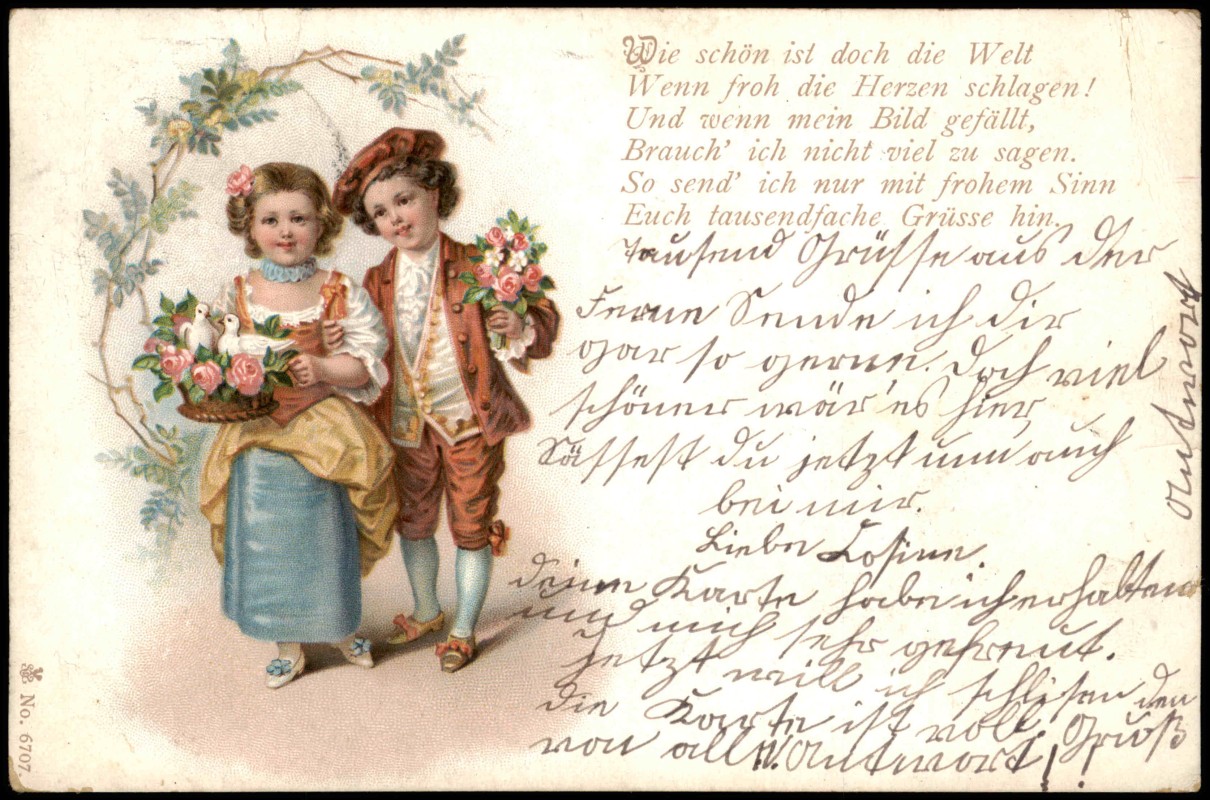 Wie schön ist doch die Welt
Wenn froh die Herzen schlagen!
Und wenn mein Bild gefällt,
Brauch' ich nicht viel zu sagen.
So send' ich nur mit frohem Sinn
Euch tausendfache Grüsse hin.
Tausend Grüsse aus der
Ferne Sende ich dir
gar so gerne. Doch viel
schöner wär' es hier
Sässest du jetzt nun auch
bei mir.
Liebe
deine Karte habe ich erhalten
und mich sehr gefreut.
jetzt will ich schlisen den
die Karte ist voll. Gruß
von all Antwort!!
Antwort
No. 6707.